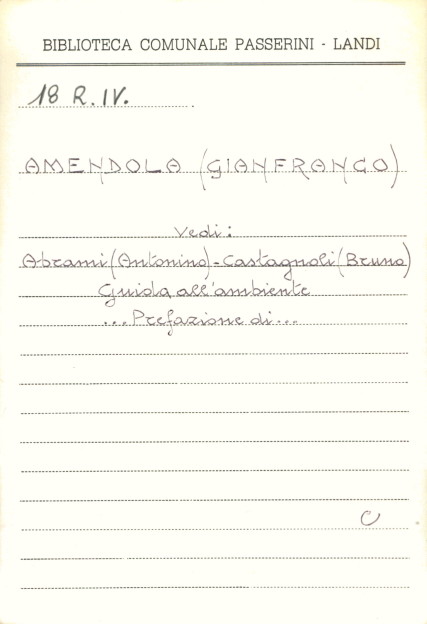 BIBLIOTECA COMUNALE PASSERINI - LANDI
18 R. IV.
AMENDOLA (GIANFRANCO)
Vedi:
Abrami (Antonino) - Castagnoli (Bruno)
Guida all'ambiente
...Prefazione di...
C